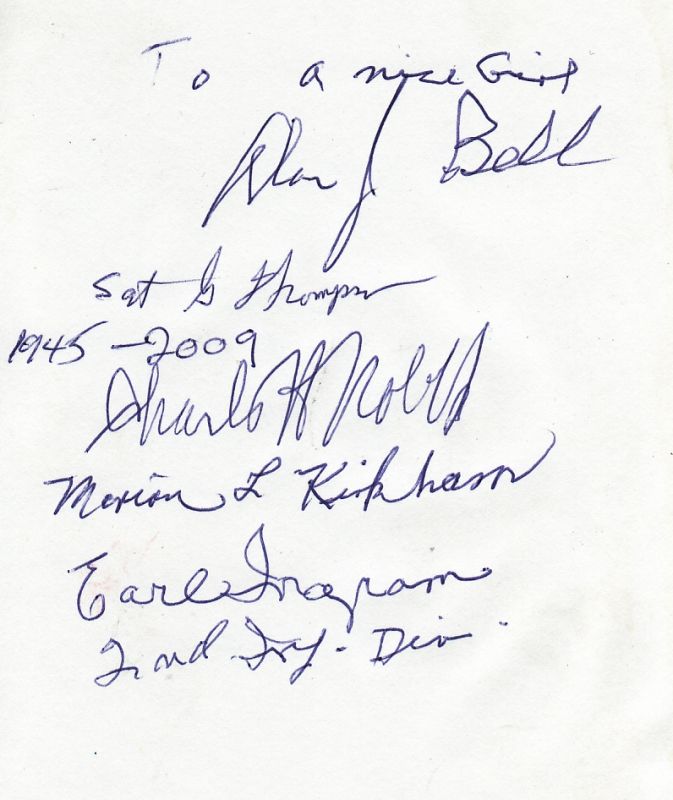 To a nice Girl
Alan J Bell
Sgt G Thompson
1945-2009
Charles H
Marion L Kirkham
Earl Ingram
2nd Inf. Div